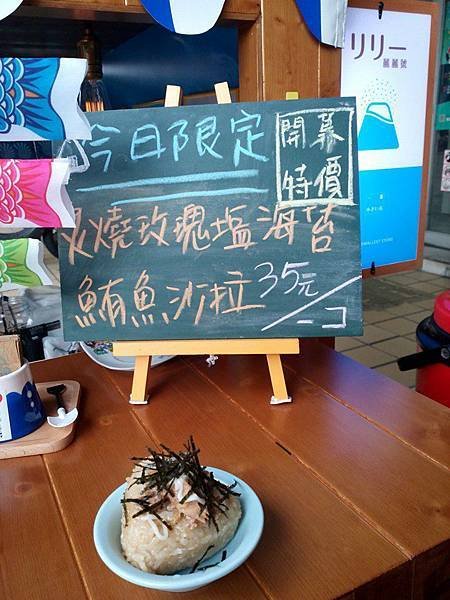 今日限定
開幕
特價
火燒玫瑰塩海苔
鮪魚沙拉 35元/一コ
リリー
麗麗號